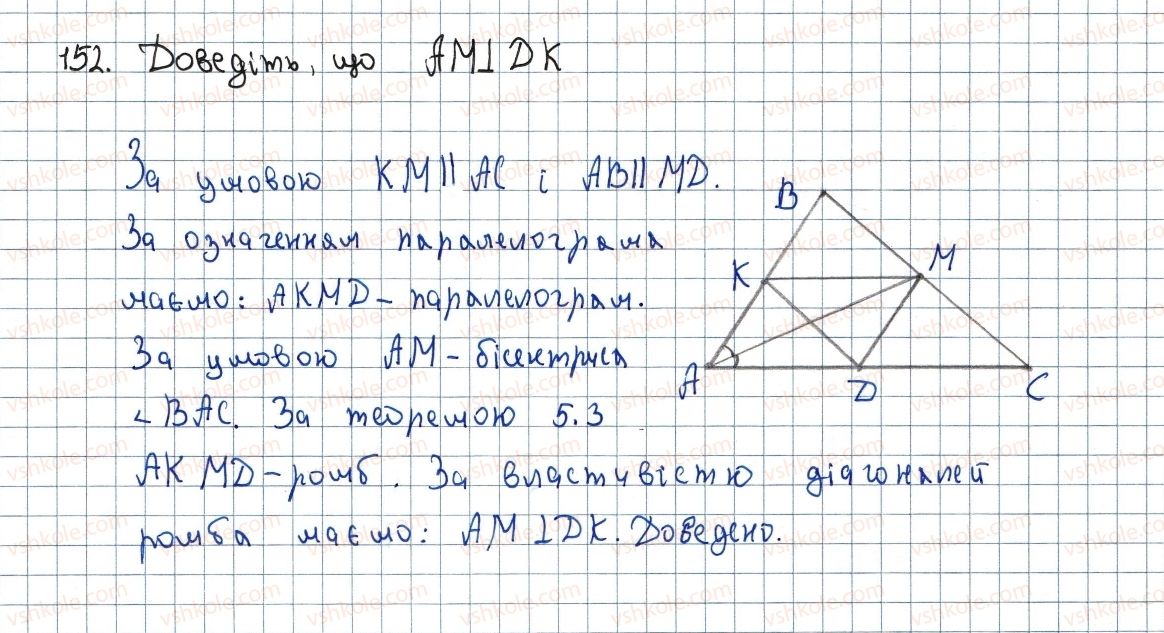 152. Доведіть, що AM⊥DK
За умовою KM||AC і AB||MD.
За означенням паралелограма
маємо: AKMD – паралелограм.
За умовою AM – бісектриса
∠BAC. За теоремою 5.3
AKMD – ромб. За властивістю діагоналей
ромба маємо: AM⊥DK. Доведено.
B
K
M
A
D
C
vshkole.com